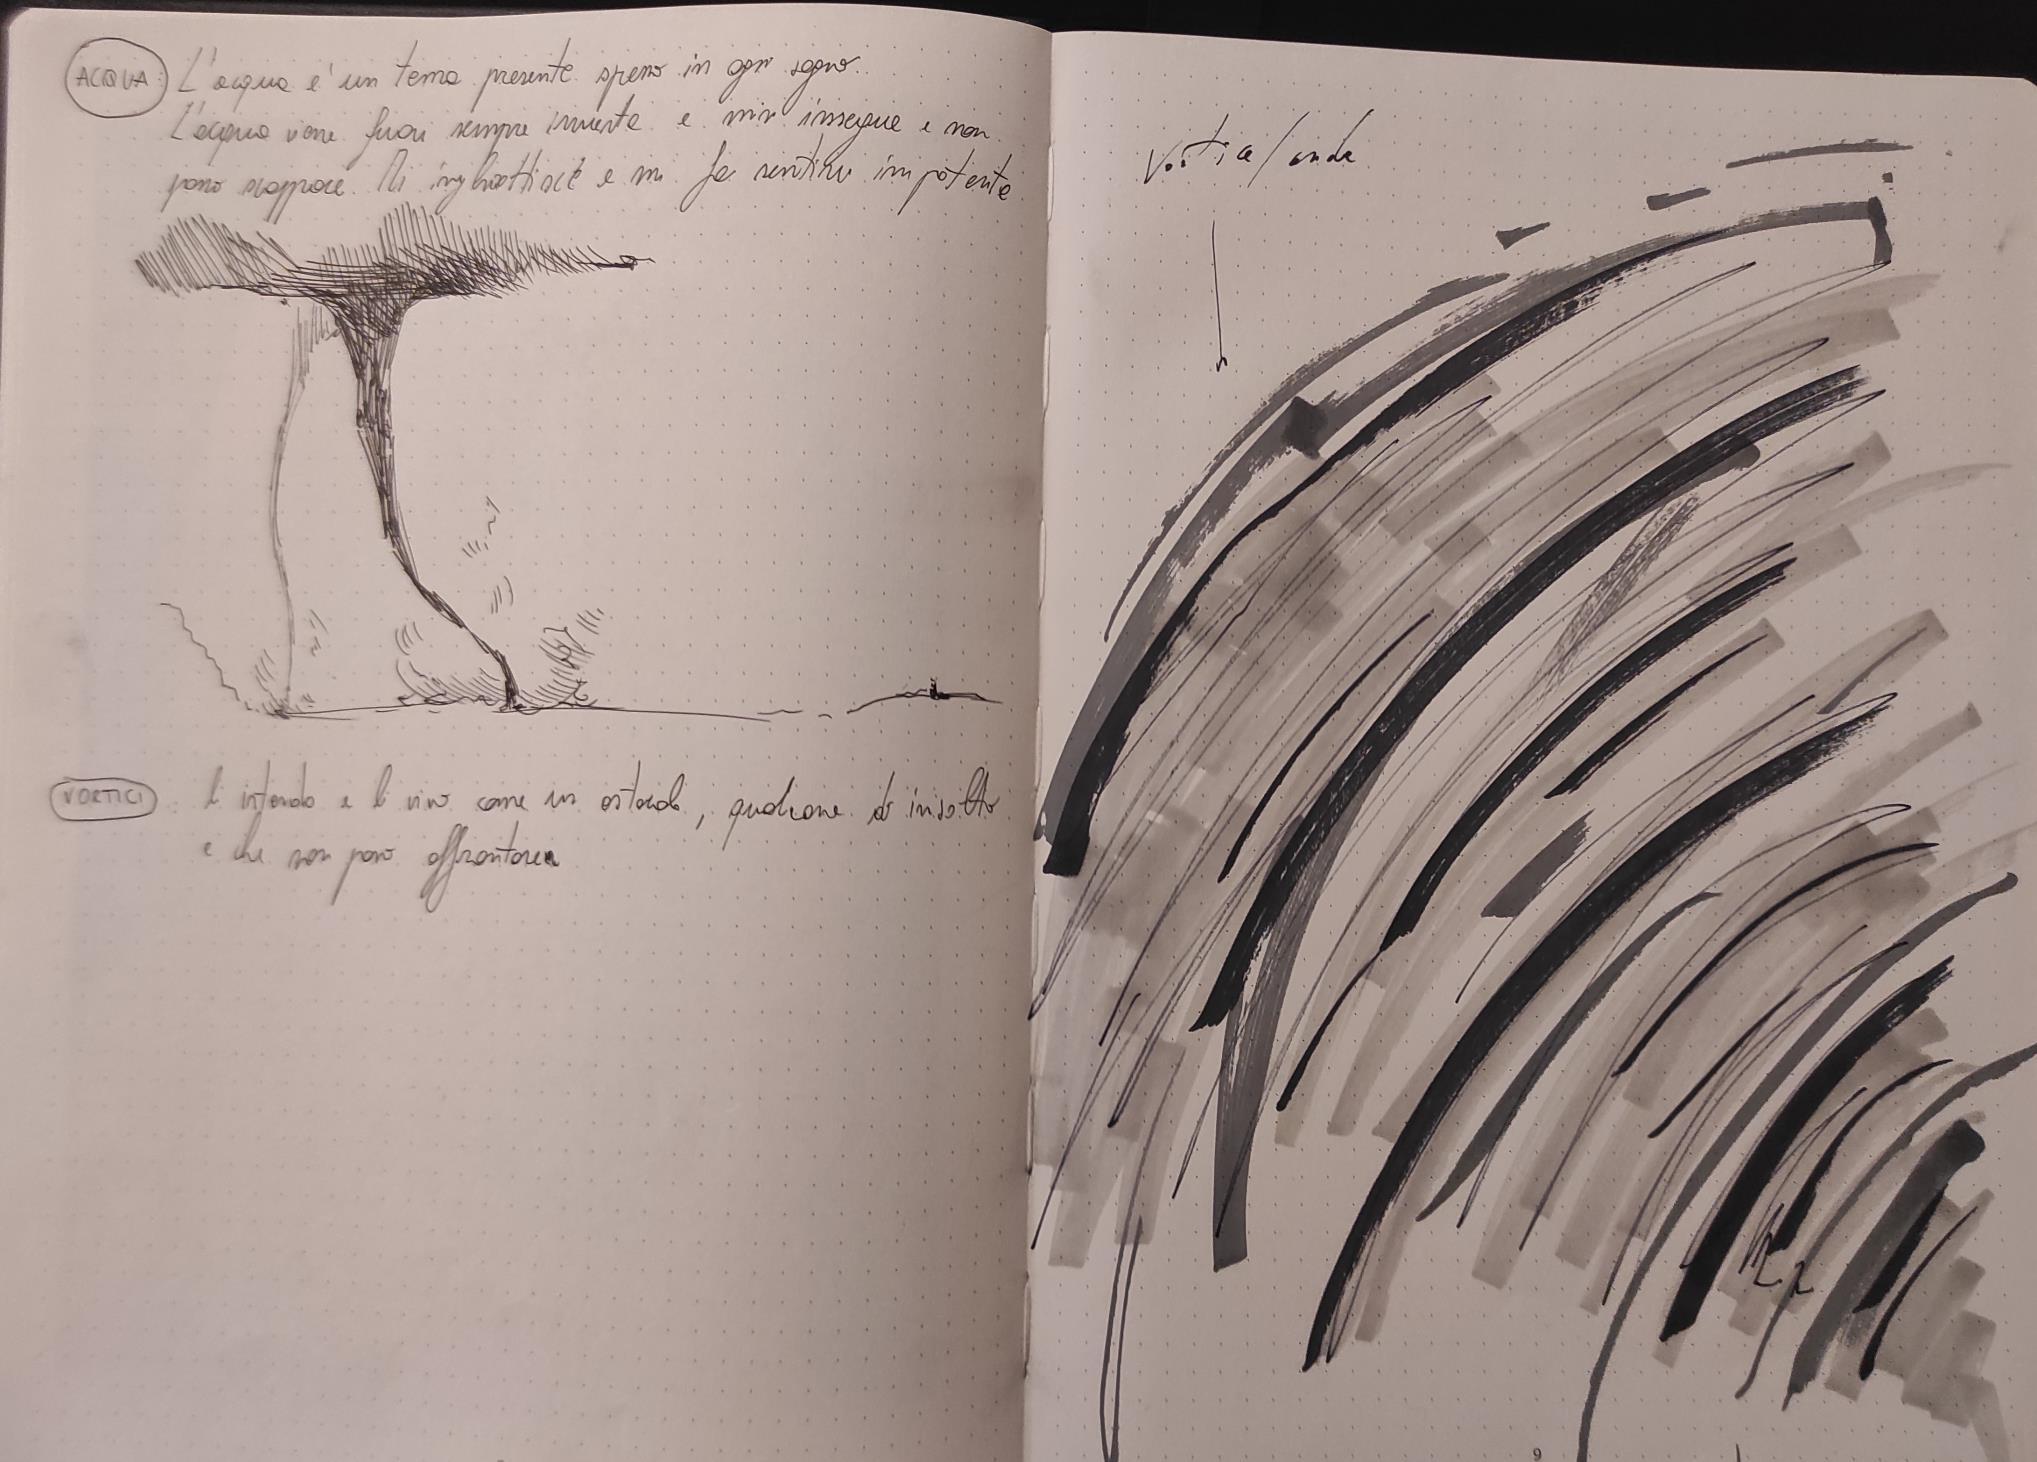 ACQUA: L'acqua è un tema presente spesso in ogni sogno.
L'acqua viene fuori sempre irruenta e mi insegue e non
posso scappare. Mi inghiottisce e mi fa sentire impotente
VORTICI: li intendo e li vivo come un ostacolo, qualcosa di insolito
e che non posso affrontare
Vortice/onda
9